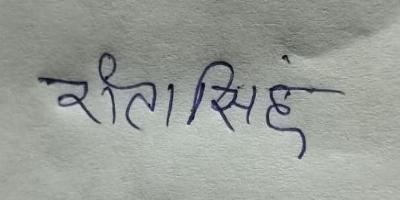 रीता सिहं